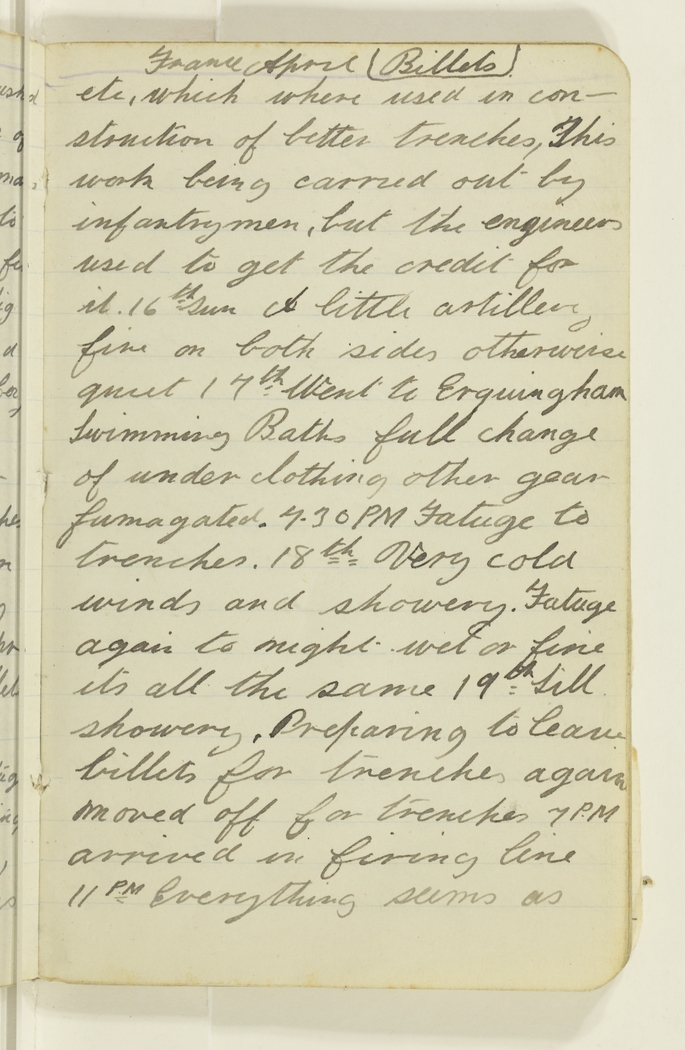 France April (Billets)
etc, which where used in con-
struction of better trenches, This
work being carried out by
infantrymen, but the engineers
used to get the credit for
it. 16th Sun A little artillery
fire on both sides otherwise
quiet 17th Went to Erquingham
Swimming Baths full change
of under clothing other gear
fumagated. 7.30 PM Fatuge to
trenches. 18th Very cold
winds and showery. Fatuge
again to night wet or fine
its all the same 19th Still
showery. Preparing to leave
billets for trenches again
moved off for trenches 7 P.M
arrived in firing line
11 PM Everything seems as